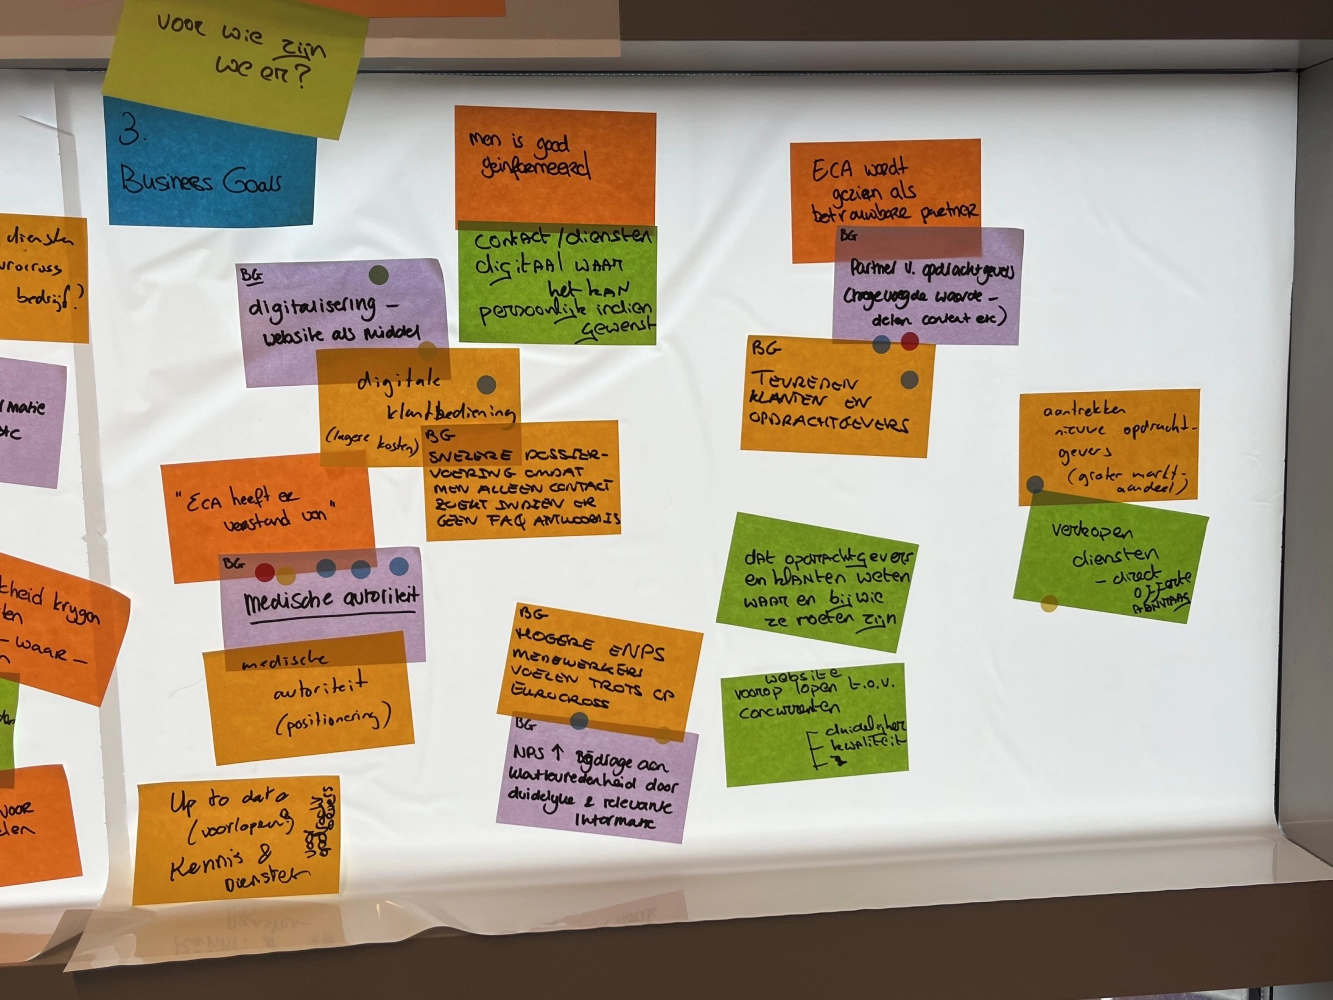 voor wie zijn
we er?
3.
Business Goals
diensten
eurocross
bedrijf?
matie
etc
kheid krygen
ten
- waar -
n
voor
len
BG
digitalisering -
website als middel
digitale
klantbediening
(lagere kosten)
BG
SNELLERE DOSSIER-
VOERING OMDAT
MEN ALLEEN CONTACT
ZOEKT INDIEN ER
GEEN FAQ ANTWOORD IS
"ECA heeft er
verstand van"
BG
Medische autoriteit
medische
autoriteit
(positionering)
Up to date
(voorlopen?)
Kennis &
Diensten
men is goed
geïnformeerd
contact/diensten
digitaal waar
het kan
persoonlijk indien
gewenst
BG
HOGERE ENPS
MEDEWERKERS
VOELEN TROTS OP
EUROCROSS
BG
NPS ↑ Bijdrage aan
klanttevredenheid door
duidelijke & relevante
Informatie
ECA wordt
gezien als
betrouwbare partner
BG
Partner v. opdrachtgevers
(toegevoegde waarde -
delen content etc)
BG
TEVREDEN
KLANTEN EN
OPDRACHTGEVERS
dat opdrachtgevers
en klanten weten
waar en bij wie
ze moeten zijn
website
voorop lopen t.o.v.
concurrenten
duidelijkheid
kwaliteit
aantrekken
nieuwe opdracht-
gevers
(groter markt-
aandeel)
verkopen
diensten
- direct
offerte
aanvraag